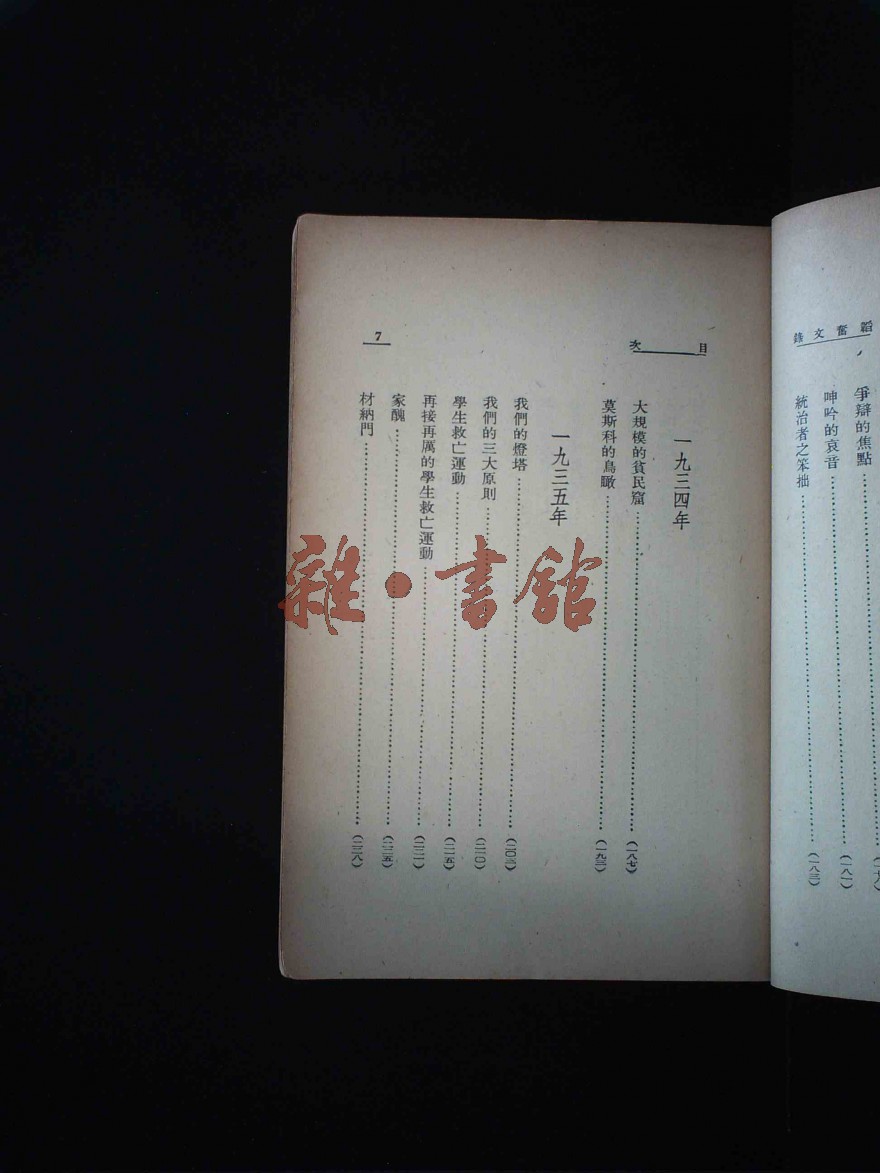 韜奮文錄
爭辯的焦點
呻吟的哀音……(一八一)
統治者之笨拙……(一八三)
目次
7
一九三四年
大規模的貧民窟……(一八七)
莫斯科的鳥瞰……(一九三)
一九三五年
我們的燈塔……(二〇三)
我們的三大原則……(二一〇)
學生救亡運動……(二一五)
再接再厲的學生救亡運動……(二二一)
家醜……(二二五)
材納門……(二二八)
雜·書館